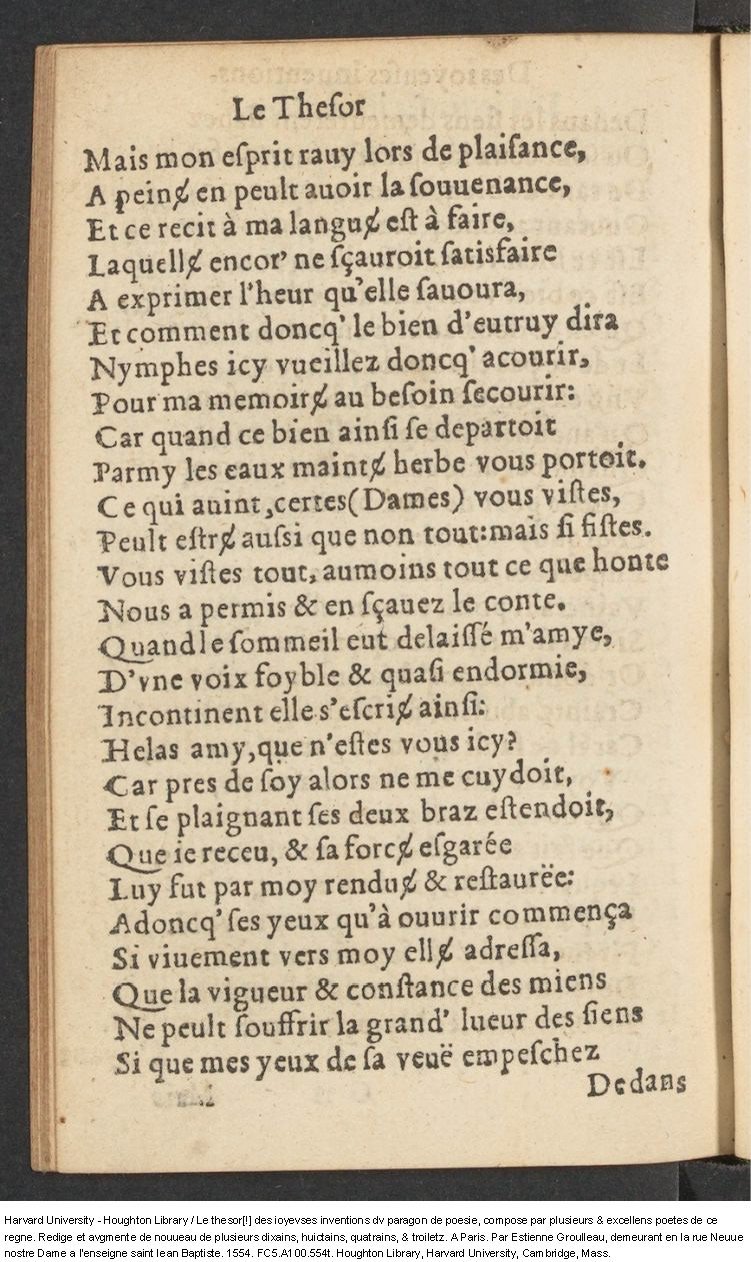 Le Theſor
Mais mon eſprit rauy lors de plaiſance,
A pein&#x247; en peult auoir la ſouuenance,
Et ce recit à ma languɇ eſt à faire,
Laquellɇ encor' ne ſçauroit ſatisfaire
A exprimer l'heur qu'elle ſauoura,
Et comment doncq' le bien d'eutruy dira
Nymphes icy vueillez doncq' acourir,
Pour ma memoirɇ au beſoin ſecourir:
Car quand ce bien ainſi ſe departoit
Parmy les eaux maintɇ herbe vous portoit.
Ce qui auint,certes(Dames) vous viſtes,
Peult eſtrɇ auſsi que non tout:mais ſi fiſtes.
Vous viſtes tout, aumoins tout ce que honte
Nous a permis & en ſçauez le conte.
Quand le ſommeil eut delaiſſé m'amye,
D'vne voix foyble & quaſi endormie,
Incontinent elle s'eſcriɇ ainſi:
Helas amy,que n'eſtes vous icy?
Car pres de ſoy alors ne me cuydoit,
Et ſe plaignant ſes deux braz eſtendoit,
Que ie receu, & ſa forcɇ eſgarée
Luy fut par moy renduɇ & reſtaurëe:
Adoncq' ſes yeux qu'à ouurir commença
Si viuement vers moy ellɇ adreſſa,
Que la vigueur & conſtance des miens
Ne peult ſouffrir la grand' lueur des ſiens
Si que mes yeux de ſa veuë empeſchez
Dedans
Harvard University - Houghton Library / Le thesor[!] des ioyevses inventions dv paragon de poesie, compose par plusieurs & excellens poetes de ce
regne. Redige et avgmente de nouueau de plusieurs dixains, huictains, quatrains, & troiletz. A Paris. Par Estienne Groulleau, demeurant en la rue Neuue
nostre Dame a l'enseigne saint Iean Baptiste. 1554. FC5.A100.554t. Houghton Library, Harvard University, Cambridge, Mass.